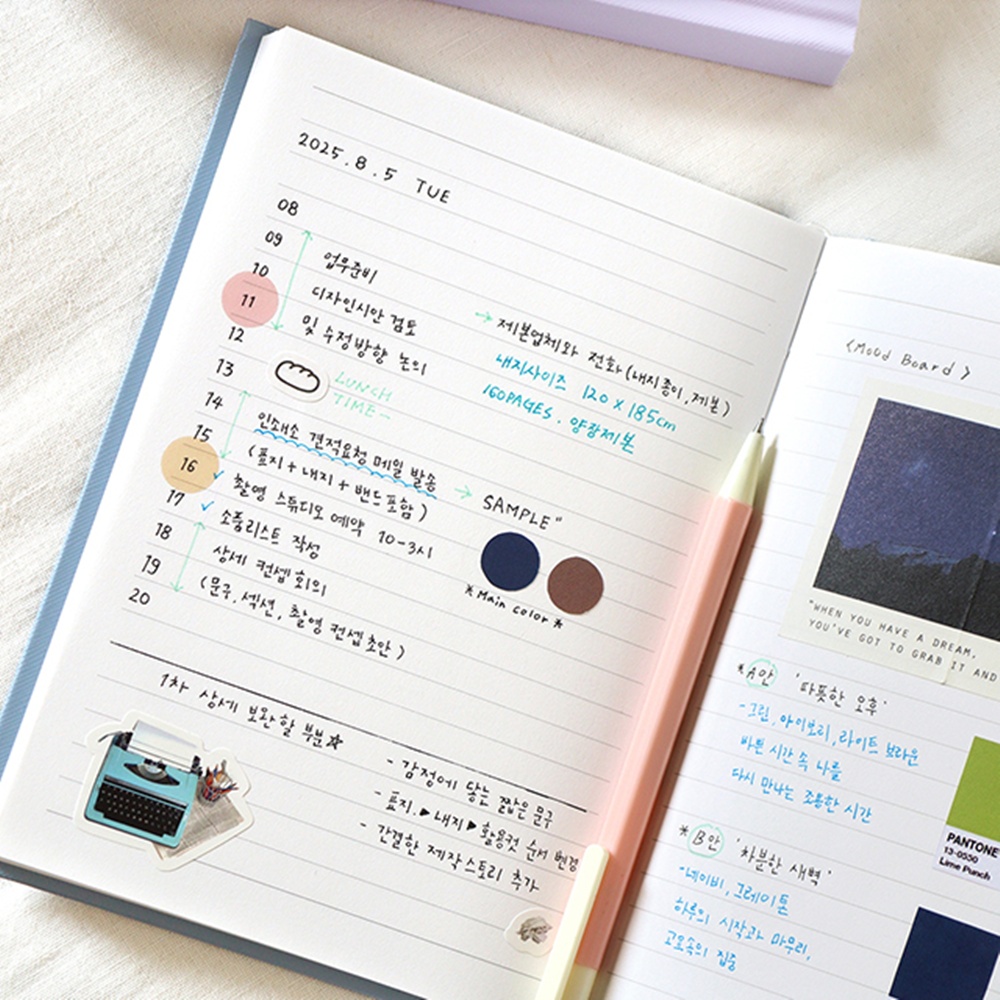 2025.8.5 TUE
08
09
10
11
12
13
14
15
16
17
18
19
20
업무준비
디자인시안 검토
및 수정방향 논의
→ 제본업체와 전화 (내지종이, 제본)
내지사이즈 120 x 185cm
160PAGES. 양장제본
LUNCH
TIME-
인쇄소 견적요청 메일 발송
(표지 + 내지 + 밴드 포함)
✓ 촬영 스튜디오 예약 10-3시
✓ 소품리스트 작성
상세 컨셉 회의
(문구, 섹션, 촬영 컨셉 초안)
→ SAMPLE"
*Main color*
1차 상세 보완할 부분☆
- 감정에 닿는 짧은 문구
- 표지.▶내지▶활용컷 순서 변경
- 간결한 제작스토리 추가
<Mood Board>
"WHEN YOU HAVE A DREAM,
YOU'VE GOT TO GRAB IT AND
*A안 '따뜻한 오후'
-그린, 아이보리, 라이트 브라운
바쁜 시간 속 나를
다시 만나는 조용한 시간
PANTONE
13-0550
Lime Punch
*B안 '차분한 새벽'
-네이비, 그레이톤
하루의 시작과 마무리,
고요속의 집중